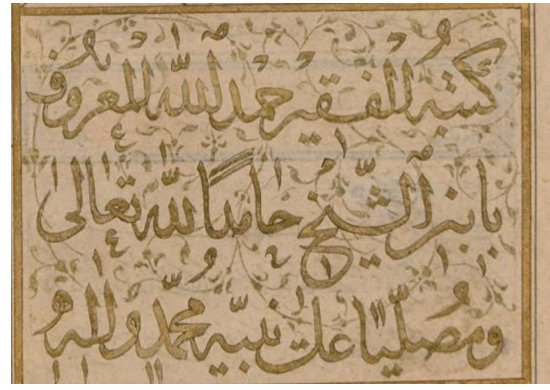 كتبه الفقير حمد الله المعروف
بابن الشيخ حامدا لله تعالى
ومصليا على نبيه محمد واله